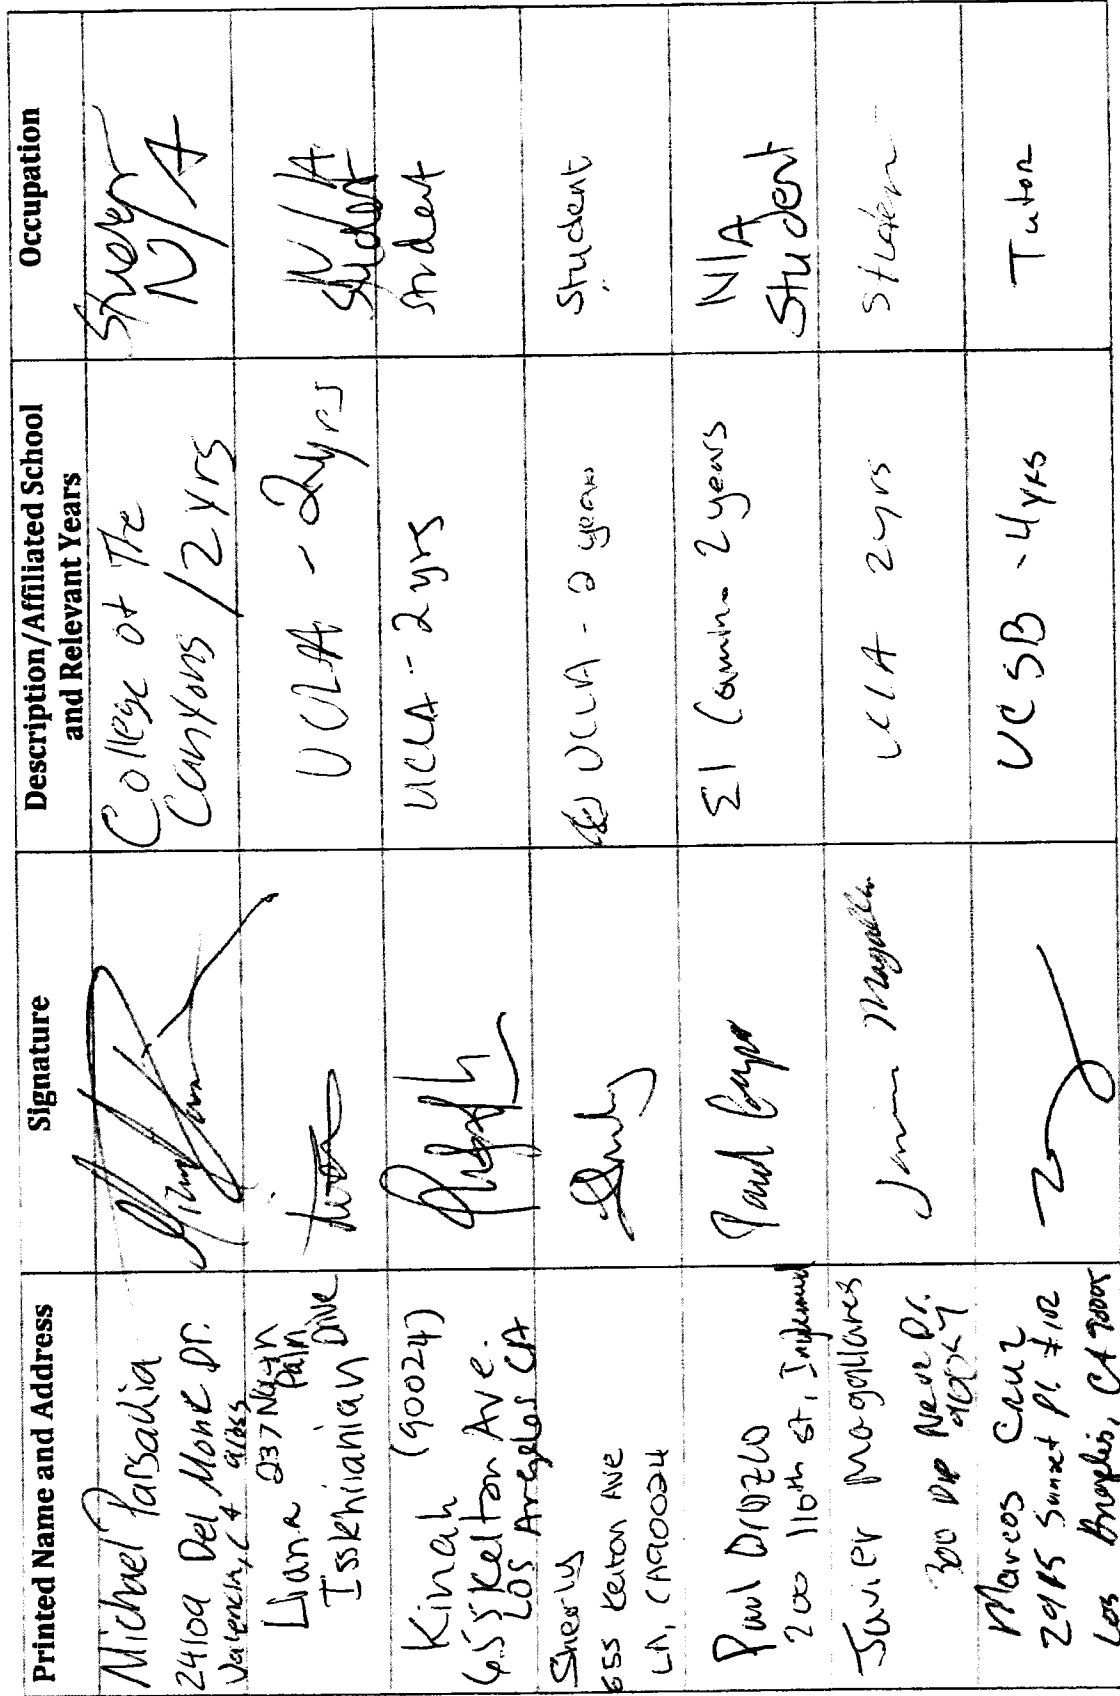 Printed Name and Address
Signature
Description/Affiliated School
and Relevant Years
Occupation
Michael Parsadia
24109 Del Monte Dr.
Valencia, CA
College of The
Canyons / 2 Yrs
Student
N/A
Liana
237 North
Palm
Isskhianian Drive
UCLA - 2yrs
N/A
Student
Kinah (90024)
655 Kelton Ave.
Los Angeles CA
UCLA - 2 yrs
Student
Sheerly
655 Kelton Ave
LA, CA 90024
UCLA - 2 years
Student
Paul
200 116th st, Inglewood
El Camino 2 years
N/A
Student
Javier Magallanes
300
Dr.
Javier
UCLA 2yrs
Student
Marcos Cruz
2915 Sunset Pl #102
Los Angeles, CA 90005
UCSB - 4 yrs
Tutor